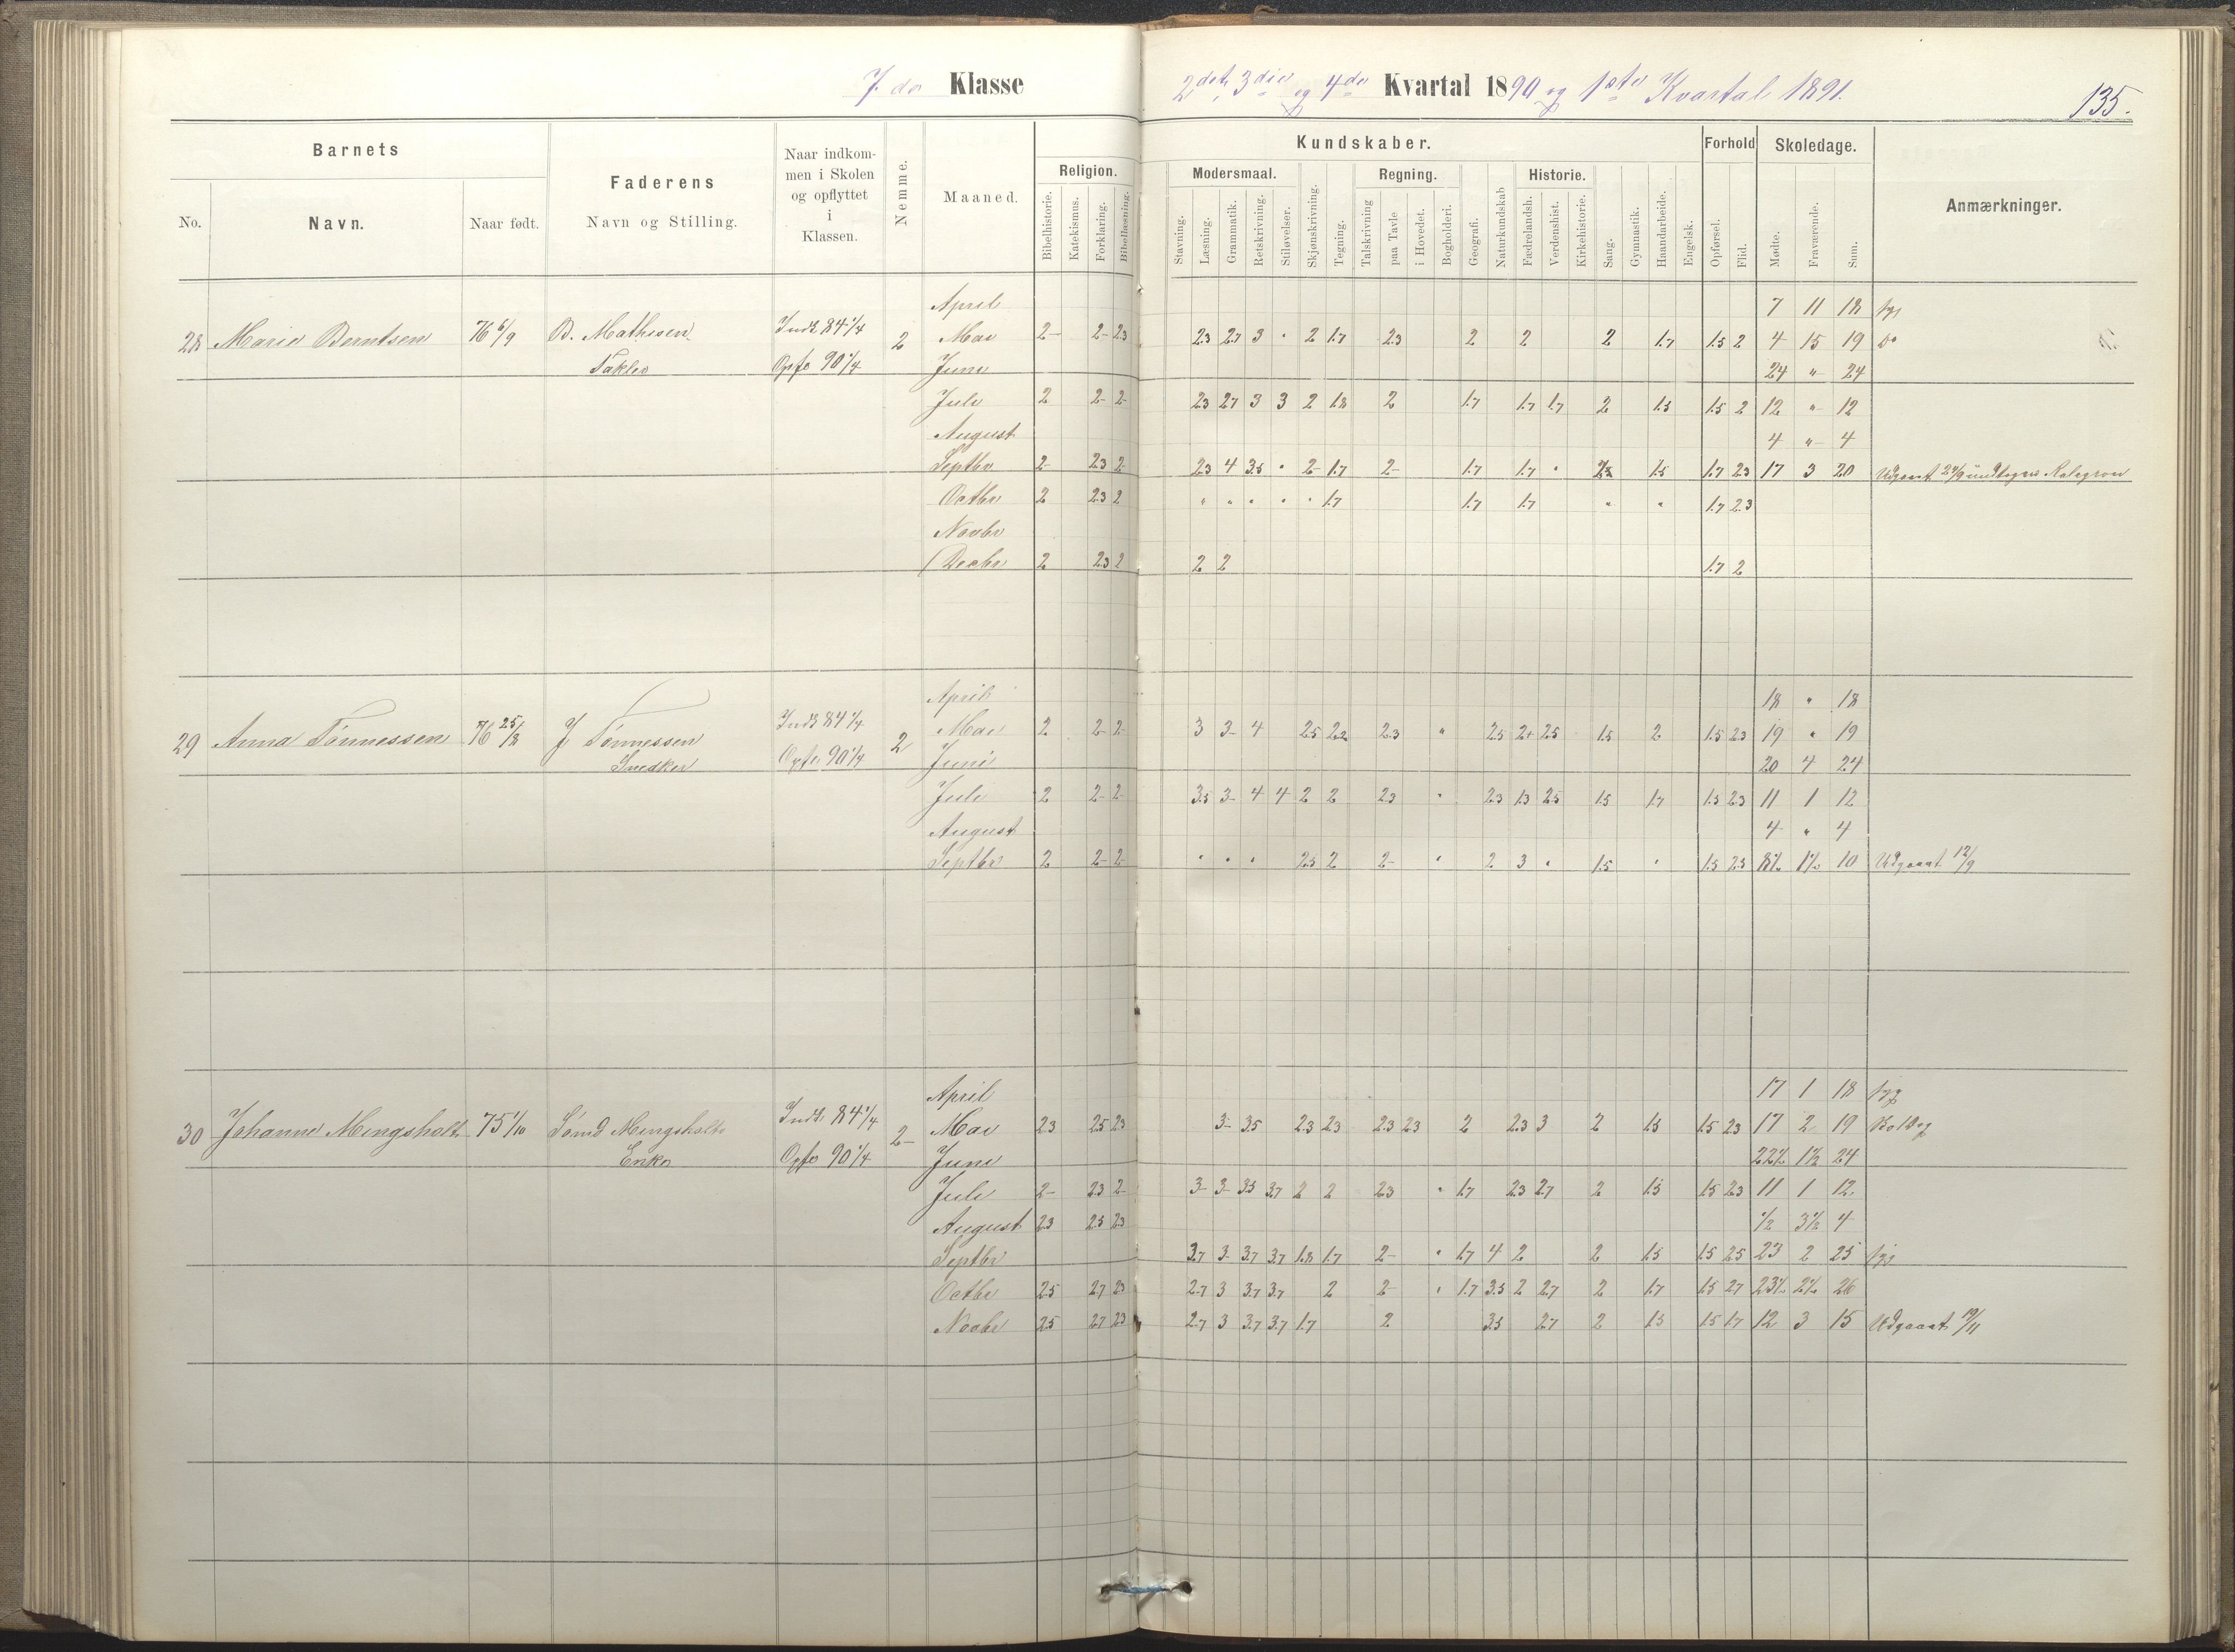 7de Klasse
2det, 3die og 4de Kvartal 1890 og 1ste Kvartal 1891.
135.
Barnets
Faderens
Naar indkom-
men i Skolen
og opflyttet
i
Klassen.
Nemme.
Maaned.
Religion.
Kundskaber.
Forhold
Skoledage.
Anmærkninger.
Modersmaal.
Regning.
Historie.
No.
Navn.
Naar født.
Navn og Stilling.
Bibelhistorie.
Katekismus.
Forklaring.
Bibellæsning.
Stavning.
Læsning.
Grammatik.
Retskrivning.
Stiløvelser.
Skjønskrivning.
Tegning.
Talskrivning
paa Tavle
i Hovedet.
Bogholderi.
Geografi.
Naturkundskab
Fædrelandsh.
Verdenshist.
Kirkehistorie.
Sang.
Gymnastik.
Haandarbeide.
Engelsk.
Opførsel.
Flid.
Mødte.
Fraværende.
Sum.
April 7 11 18 syg
28 Marie Berntsen 76 6/9 B. Mathisen Indk 84 1/4 2 Mai 2- 2- 2.3 2.3 2.7 3 " 2 1.7 2.3 2 2 2 1.7 1.5 2 4 15 19 Do
Takler Opfl 90 1/4 Juni 24 " 24
Juli 2 2- 2- 2.3 2.7 3 3 2 1.8 2 1.7 1.7 1.7 2 1.5 1.5 2 12 " 12
August 4 " 4
Septbr 2- 2.3 2- 2.3 4 3.5 " 2- 1.7 2- 1.7 1.7 " 1.5 1.7 2.3 17 3 20 Udgaat
Octbr 2 2.3 2 " " " " " 1.7 1.7 1.7 " " 1.7 2.3
Novbr
Decbr 2 2.3 2 2 2 1.7 2
April 18 " 18
29 Anna Tønnessen 76 25/8 J Tønnessen Indk 84 1/4 2 Mai 2 2- 2- 3 3- 4 2.5 2.2 2.3 " 2.5 2+ 2.5 1.5 2 1.5 2.3 19 " 19
Snedker Opfl. 90 1/4 Juni 20 4 24
Juli 2 2- 2- 3.5 3- 4 4 2 2 2.3 " 2.3 1.3 2.5 1.5 1.7 1.5 2.3 11 1 12
August 4 " 4
Septbr 2 2- 2- " " " 2.5 2 2- " 2 3 " 1.5 " 1.5 2.5 8½ 1½ 10 Udgaat 12/9
April 17 1 18 syg
30 Johanne Mengsholt 75 1/10 Mengsholt Indk. 84 1/4 2- Mai 2.3 2.5 2.3 3- 3.5 2.3 2.3 2.3 2.3 2 2.3 3 2 1.5 1.5 2.3 17 2 19
Enke Opfl 90 1/4 Juni 22½ 1½ 24
Juli 2- 2.3 2- 3- 3- 3.5 3.7 2 2 2.3 " 1.7 2.3 2.7 2 1.5 1.5 2.3 11 1 12
August 2.3 2.5 2.3 ½ 3½ 4
Septbr 3.7 3- 3.7 3.7 1.8 1.7 2- " 1.7 4 2 2 1.5 1.5 2.5 23 2 25 syg
Octbr 2.5 2.7 2.3 2.7 3 3.7 3.7 2 2- " 1.7 3.5 2 2.7 2 1.7 1.5 2.7 23½ 2½ 26
Novbr 2.5 2.7 2.3 2.7 3 3.7 3.7 1.7 2 3.5 2.7 2 1.5 1.5 1.7 12 3 15 Udgaaet 19/11